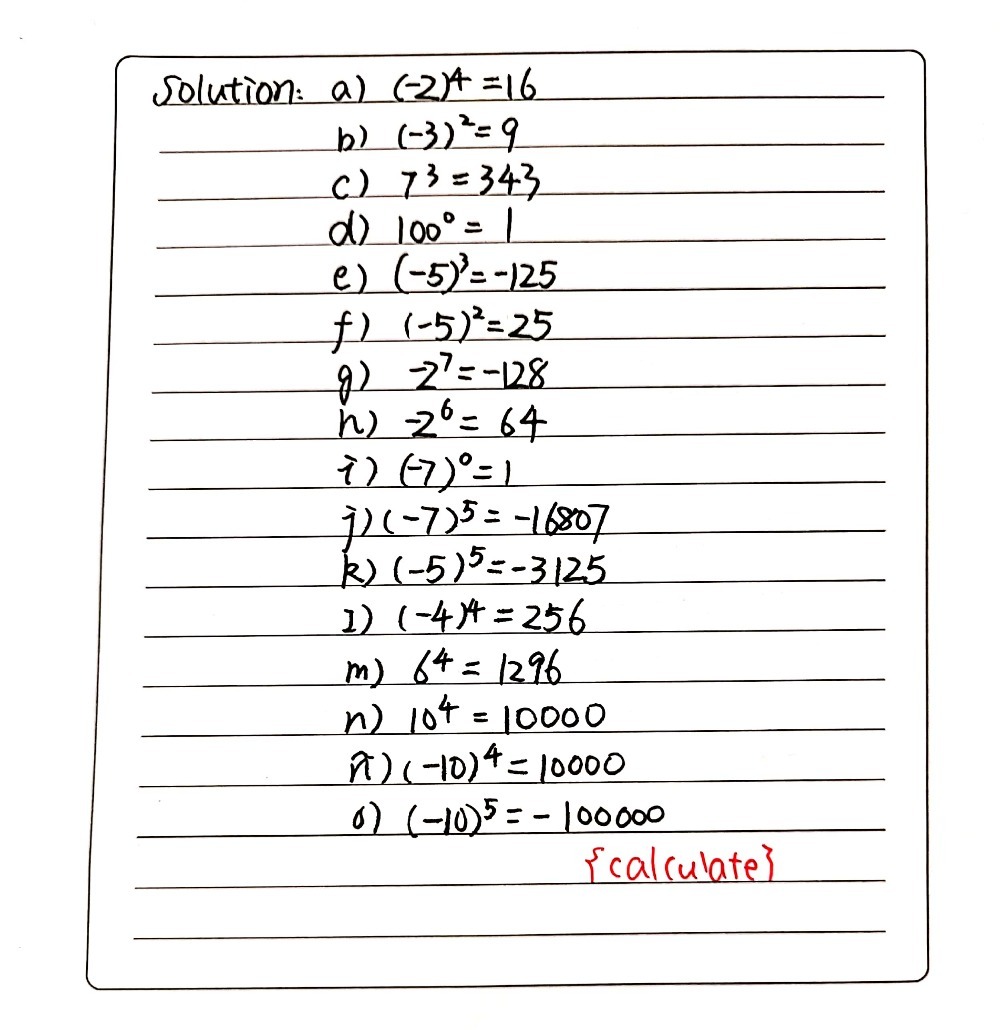 Solution: a) (-2)⁴ = 16
b) (-3)² = 9
c) 7³ = 343
d) 100⁰ = 1
e) (-5)³ = -125
f) (-5)² = 25
g) -2⁷ = -128
h) -2⁶ = 64
i) (-7)⁰ = 1
j) (-7)⁵ = -16807
k) (-5)⁵ = -3125
l) (-4)⁴ = 256
m) 6⁴ = 1296
n) 10⁴ = 10000
ñ) (-10)⁴ = 10000
o) (-10)⁵ = -100000
{calculate}